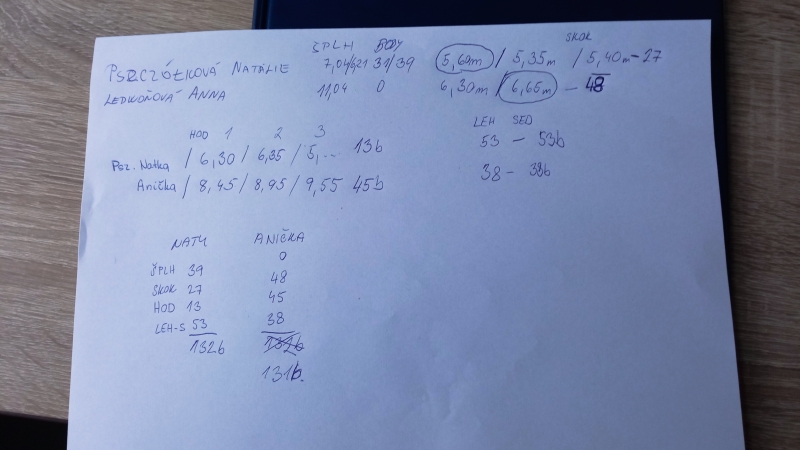 ŠPLH BODY SKOK
PSZCZÓŁKOVÁ NATÁLIE 7,04/6,21 31/39 5,60m / 5,35m / 5,40m - 27
LEDKOŇOVÁ ANNA 11,04 0 6,30m / 6,65m - 48
LEH SED
53 - 53b
38 - 38b
HOD 1 2 3
Natka / 6,30 / 6,35 / 5,... 13b
Anička / 8,45 / 8,95 / 9,55 45b
NATY ANIČKA
ŠPLH 39 0
SKOK 27 48
HOD 13 45
LEH-S 53 38
132b 132b
131b.